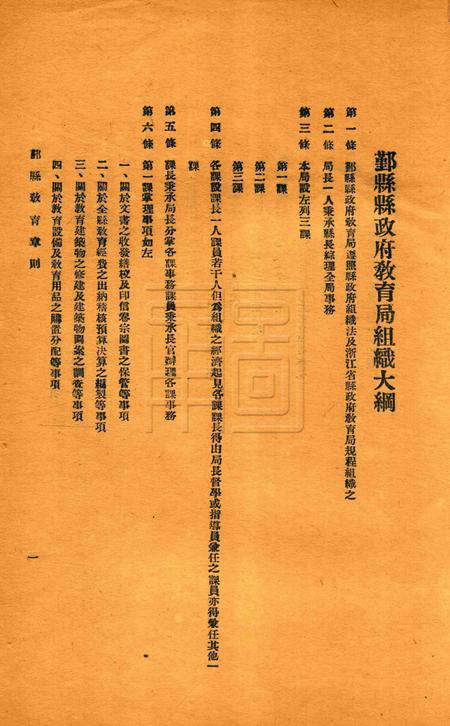 鄞縣縣政府教育局組織大綱
第一條　鄞縣縣政府教育局遵照縣政府組織法及浙江省縣政府教育局規程組織之
第二條　局長一人秉承縣長綜理全局事務
第三條　本局設左列三課
第一課
第二課
第三課
第四條　各課設課長一人課員若干人但為組織之經濟起見各課課長得由局長督學或指導員兼任之課員亦得兼任其他一
課
第五條　課長秉承局長分掌各課事務課員秉承長官辦理各課事務
第六條　第一課掌理事項如左
一、關於文書之收發繕校及印信卷宗圖書之保管等事項
二、關於全縣教育經費之出納稽核預算決算之編製等事項
三、關於教育建築物之修建及建築物圖案之調查等事項
四、關於教育設備及教育用品之購置分配等事項
鄞縣教育章則
一